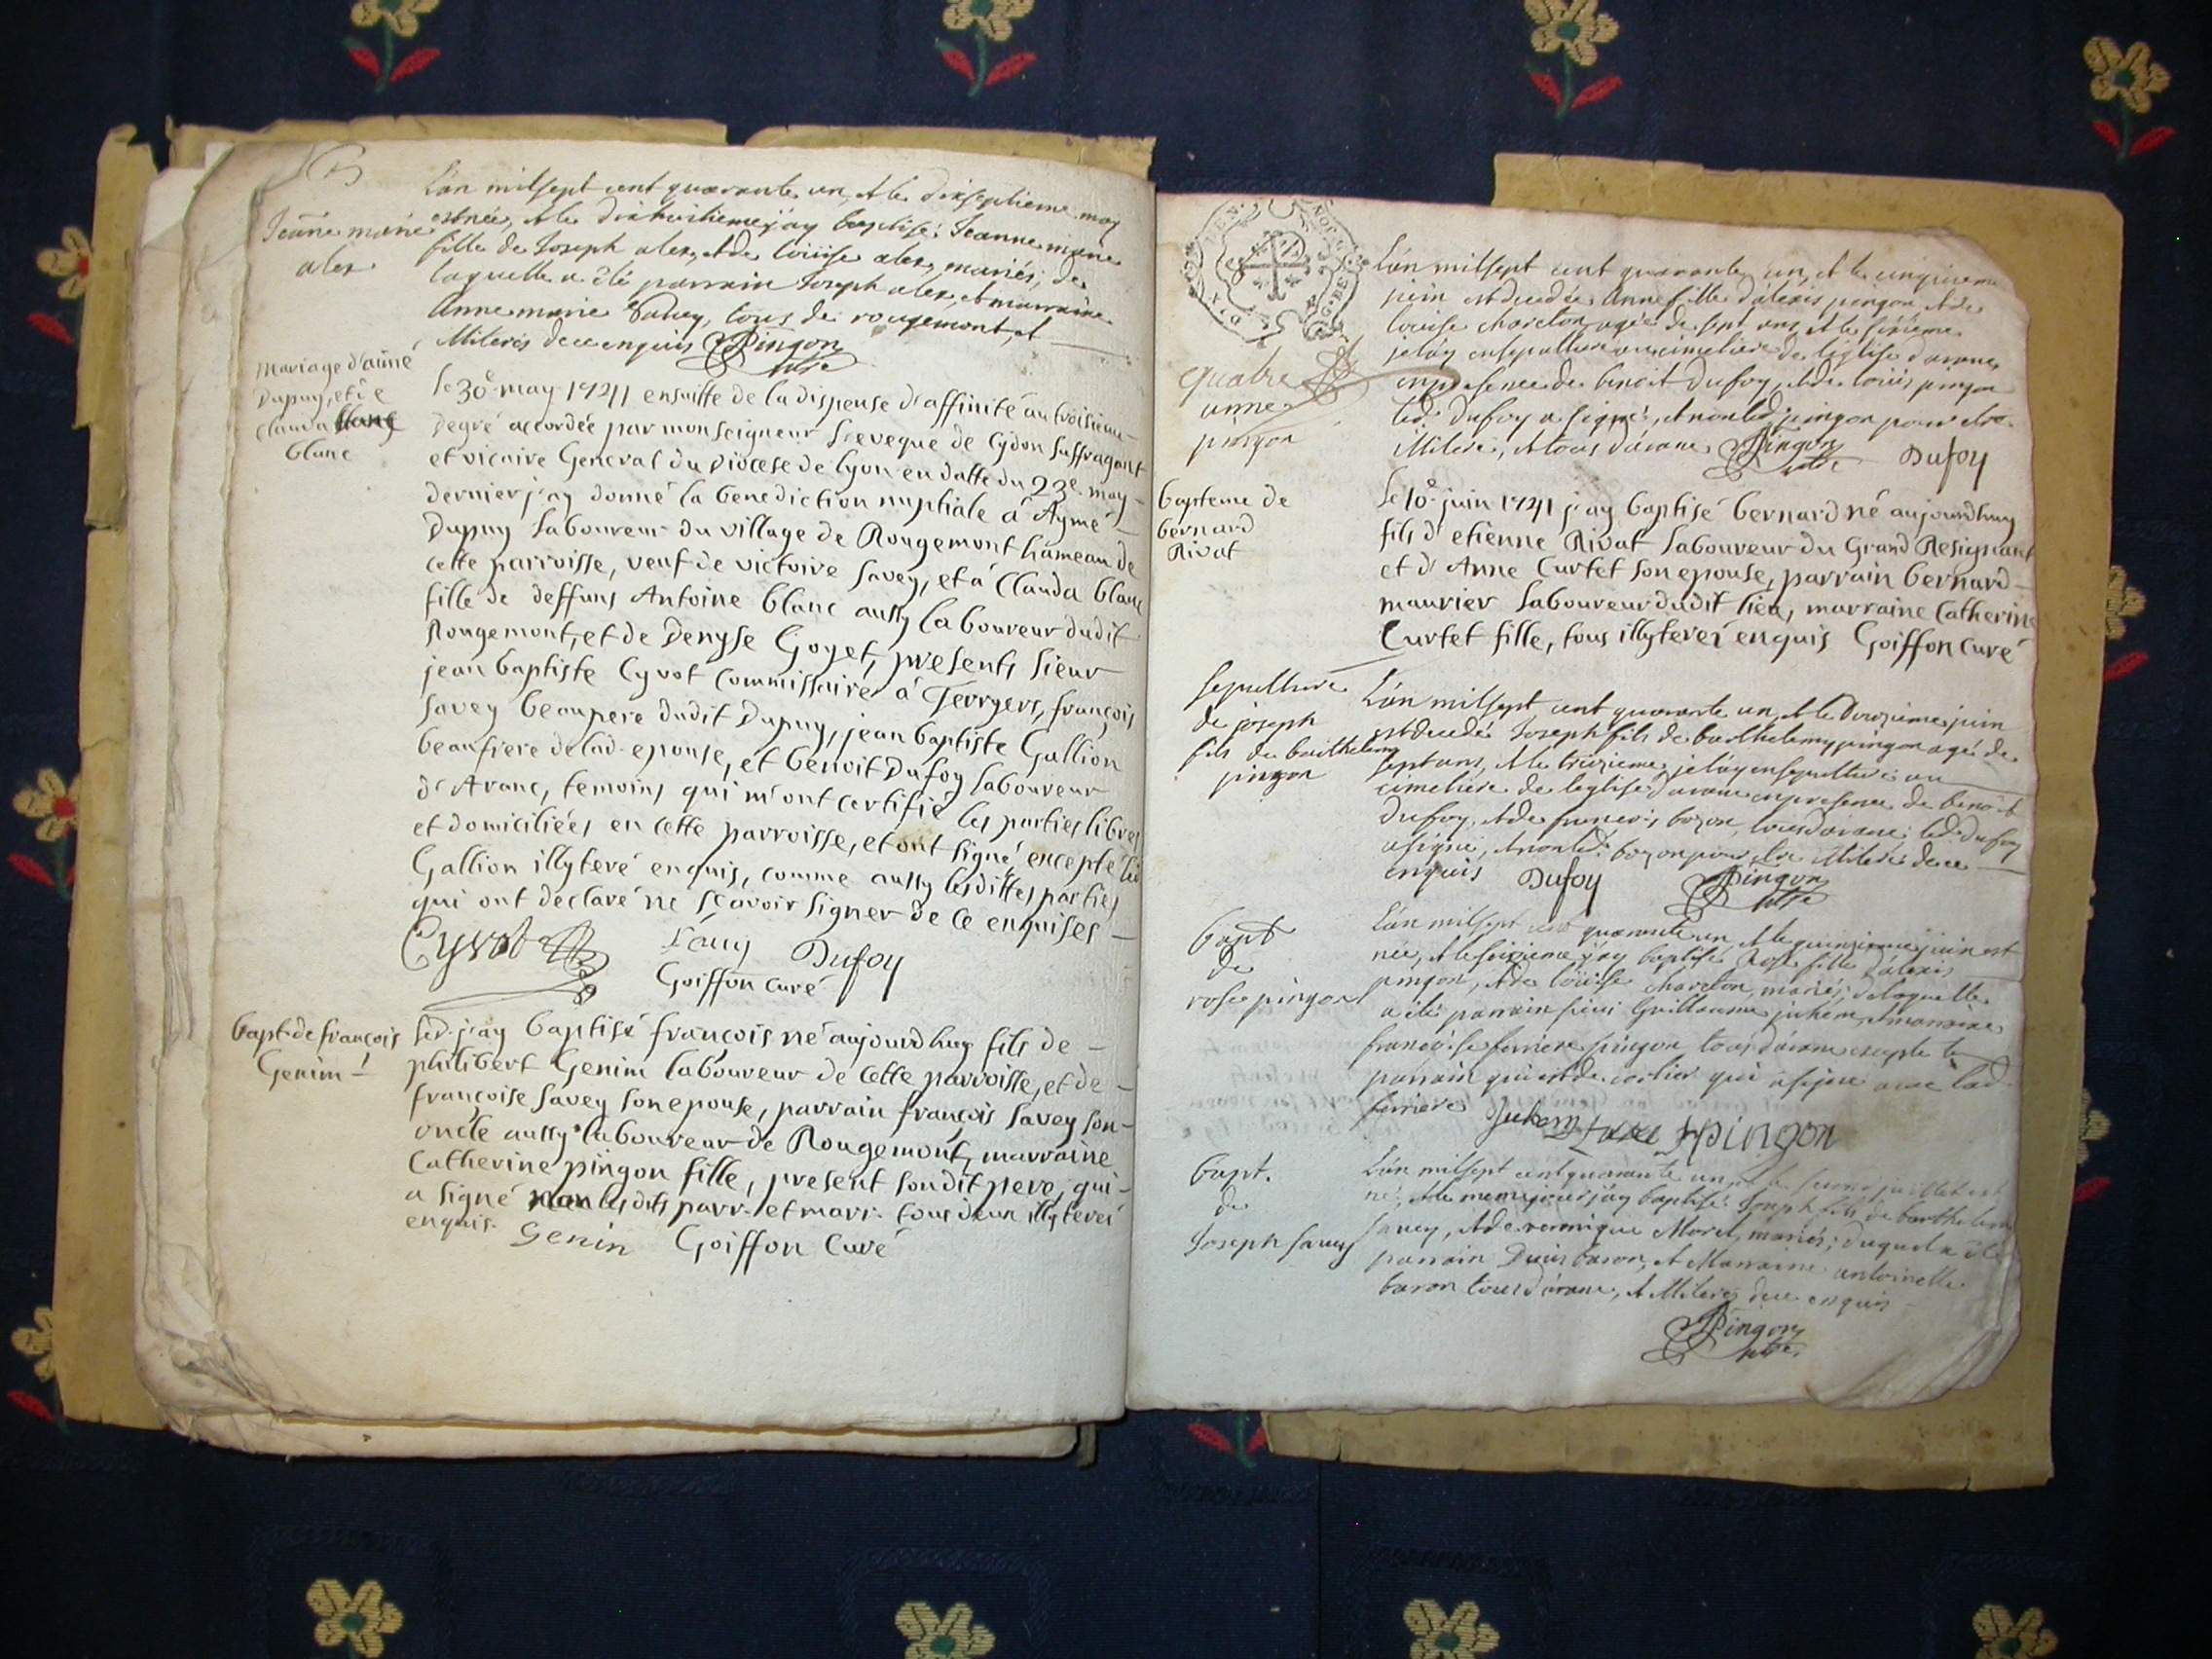 Jeanne marie
alex
L'an milsept cent quarante un, et le dixseptieme may
est née, et le dixhuitieme j'ay baptisé Jeanne marie
fille de Joseph alex, et de loüise alex, mariés; de
laquelle a été parrain Joseph alex, et marraine
Anne marie Savey, tous de rougemont, et
illiterés de ce enquis Pingon
vic.re
mariage d'aimé
Dupuy, et de
Clauda blanc
blanc
le 30e may 1741 ensuitte de la dispense d'affinité au troisieme
degré accordée par monseigneur L'eveque de Cydon suffragant
et vicaire General du Diocese de Lyon en datte du 23e may
dernier j'ay donné la benediction nuptiale à Aymé
Dupuy laboureur du village de Rougemont hameau de
cette parroisse, veuf de victoire Savey, et à Clauda blanc
fille de deffuns Antoine blanc aussy laboureur dudit
Rougemont, et de Denyse Goyet, presents sieur
jean baptiste Cyvot Commissaire à Ferryers, françois
Savey beaupere dudit Dupuy, jean baptiste Gallion
beaufrere de lad. epouse, et benoit Dufoy laboureur
d'Aranc, temoins qui m'ont certifié les parties libres
et domiciliées en cette parroisse, et ont signé excepté led.
Gallion illyteré enquis, comme aussy lesdittes parties
qui ont declaré ne scavoir signer de ce enquises
Cyvot Savey Dufoy
Goiffon curé
bapt. de françois
Genin
led. j'ay baptisé françois né aujourdhuy fils de
philibert Genin laboureur de cette parroisse, et de
françoise Savey son epouse, parrain françois Savey son
oncle aussy laboureur de Rougemont, marraine
Catherine pingon fille, present sondit pere, qui
a signé non lesdits parr. et marr. tous deux illyterés
enquis. Genin Goiffon Curé
quatre
anne
pingon
L'an milsept cent quarante un, et le cinquieme
juin est decedée Anne fille d'alexis pingon, et de
loüise charcton, agée de sept ans, et le sixieme
je l'ay ensepulturé au cimetiere de l'église d'aranc
en presence de benoit Dufoy, et de loüis pingon
led. Dufoy a signé, et non led. pingon pour etre
illiteré, et tous d'aranc Pingon Dufoy
vic.re
bapteme de
bernard
Rivat
le 10e juin 1741 j'ay baptisé bernard né aujourdhuy
fils d'etienne Rivat laboureur du Grand Resignant
et d'Anne Curtet son epouse, parrain bernard
maurier laboureur dudit lieu, marraine Catherine
Curtet fille, tous illyterés enquis Goiffon curé
sepulture
de joseph
fils de barthelemy
pingon
L'an milsept cent quarante un, et le douzieme juin
est decedé Joseph fils de barthelemy pingon agé de
sept ans, et le treizieme je l'ay ensepulturé au
cimetiere de l'eglise d'aranc en presence de benoit
Dufoy, et de francois bozon, tous d'aranc; led. dufoy
a signé, et non led. bozon pour etre illiteré de ce
enquis Dufoy Pingon
vic.re
bapt
de
rose pingon
L'an milsept cent quarante un, et le quinzieme juin est
née, et le seizieme j'ay baptisé Rose fille d'alexis
pingon, et de loüise charcton, mariés; de laquelle
a été parrain sieur Guillaume juhem, et marraine
françoise ferriere pingon, tous d'aranc excepté le
parrain qui est de corlier qui a signé avec lad.
ferriere Juhem pingon
bapt.
de
Joseph savey
L'an milsept cent quarante un, et le second juillet est
né, et le meme jour j'ay baptisé Joseph fils de barthelemy
savey, et de veronique Moret, mariés; duquel a été
parrain Denis baron, et Marraine antoinette
baron tous d'aranc, et illiterés de ce enquis
Pingon
vic.re